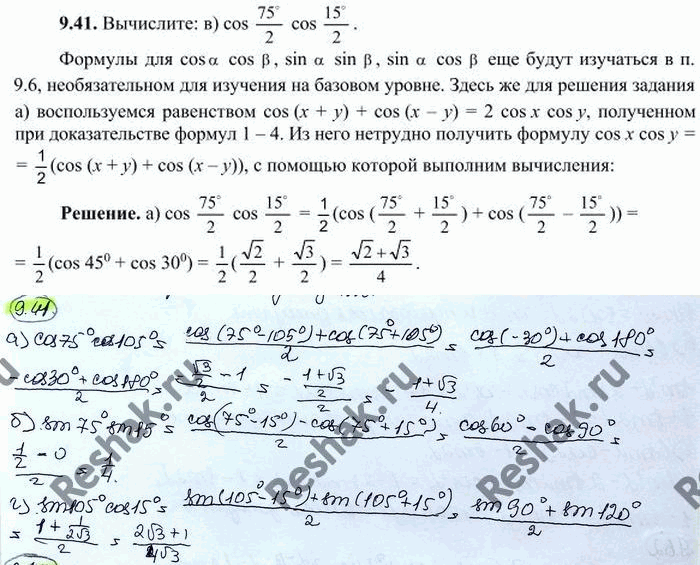 9.41. Вычислите: в) cos 75°/2 cos 15°/2 .
Формулы для cos α cos β, sin α sin β, sin α cos β еще будут изучаться в п.
9.6, необязательном для изучения на базовом уровне. Здесь же для решения задания
а) воспользуемся равенством cos (x + y) + cos (x – y) = 2 cos x cos y, полученном
при доказательстве формул 1 – 4. Из него нетрудно получить формулу cos x cos y =
= 1/2 (cos (x + y) + cos (x – y)), с помощью которой выполним вычисления:
Решение. а) cos 75°/2 cos 15°/2 = 1/2 (cos ( 75°/2 + 15°/2 ) + cos ( 75°/2 – 15°/2 )) =
= 1/2 (cos 45⁰ + cos 30⁰) = 1/2 ( √2/2 + √3/2 ) = (√2 + √3)/4 .
9.41
а) cos75° cos105° = (cos(75°-105°)+cos(75°+105°))/2 = (cos(-30°)+cos180°)/2 =
(cos30°+cos180°)/2 = (√3/2 - 1)/2 = - (1+√3)/2/2 = - (1+√3)/4.
б) sin75° sin15° = (cos(75°-15°)-cos(75°+15°))/2 = (cos60°-cos90°)/2 =
(1/2 - 0)/2 = 1/4.
г) sin105° cos15° = (sin(105°-15°)+sin(105°+15°))/2 = (sin90°+sin120°)/2
= (1+1/2√3)/2 = (2√3+1)/4√3
Reshak.ru
Reshak.ru
Reshak.ru